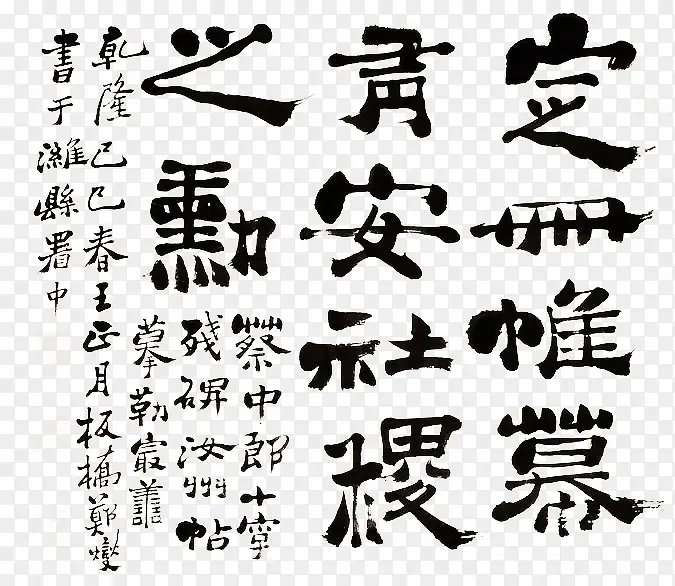 定冊帷幕
有安社稷
之勳
蔡中郎十字
殘碑汝州帖
摹勒㝡譱
乾隆己巳春王正月板橋鄭燮
書于濰縣署中